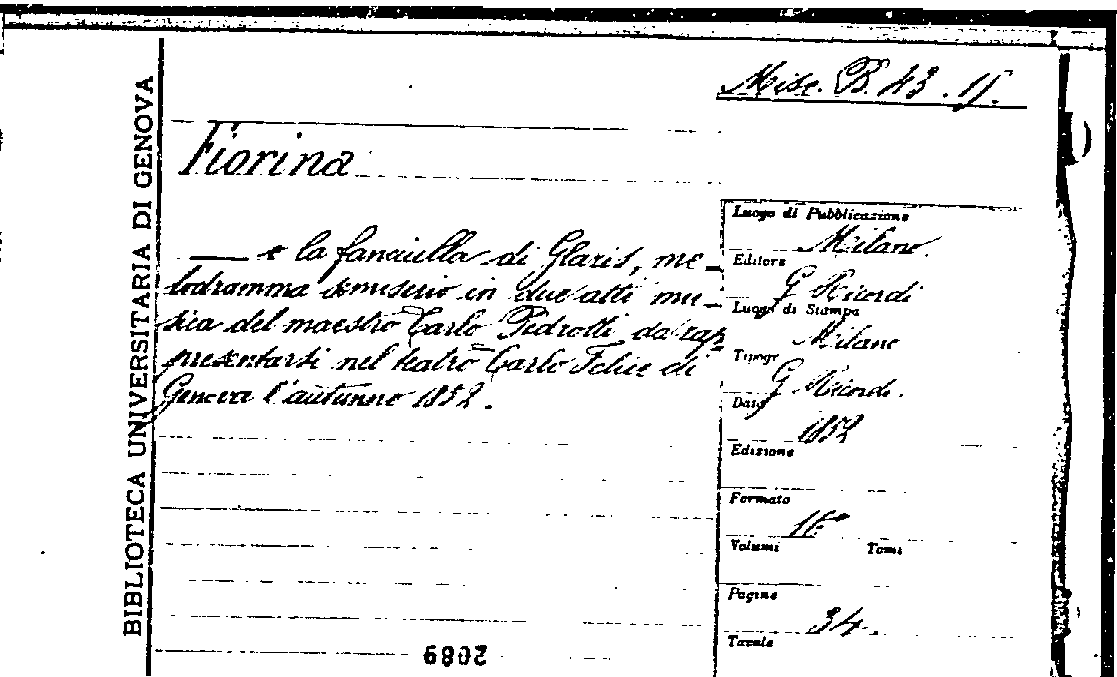 BIBLIOTECA UNIVERSITARIA DI GENOVA
Misc. B. 43. 15.
Fiorina
— e la fanciulla di Glaris, me-
lodramma semiserio in due atti mu-
sica del maestro Carlo Pedrotti da rap-
presentarsi nel teatro Carlo Felice di
Genova l'autunno 1852.
Luogo di Pubblicazione
Milano.
Editore
G Ricordi
Luogo di Stampa
Milano
Tipogr
G Ricordi.
Data
1852
Edizione
Formato
16°
Volumi Tomi
Pagine
34.
Tavole
2089